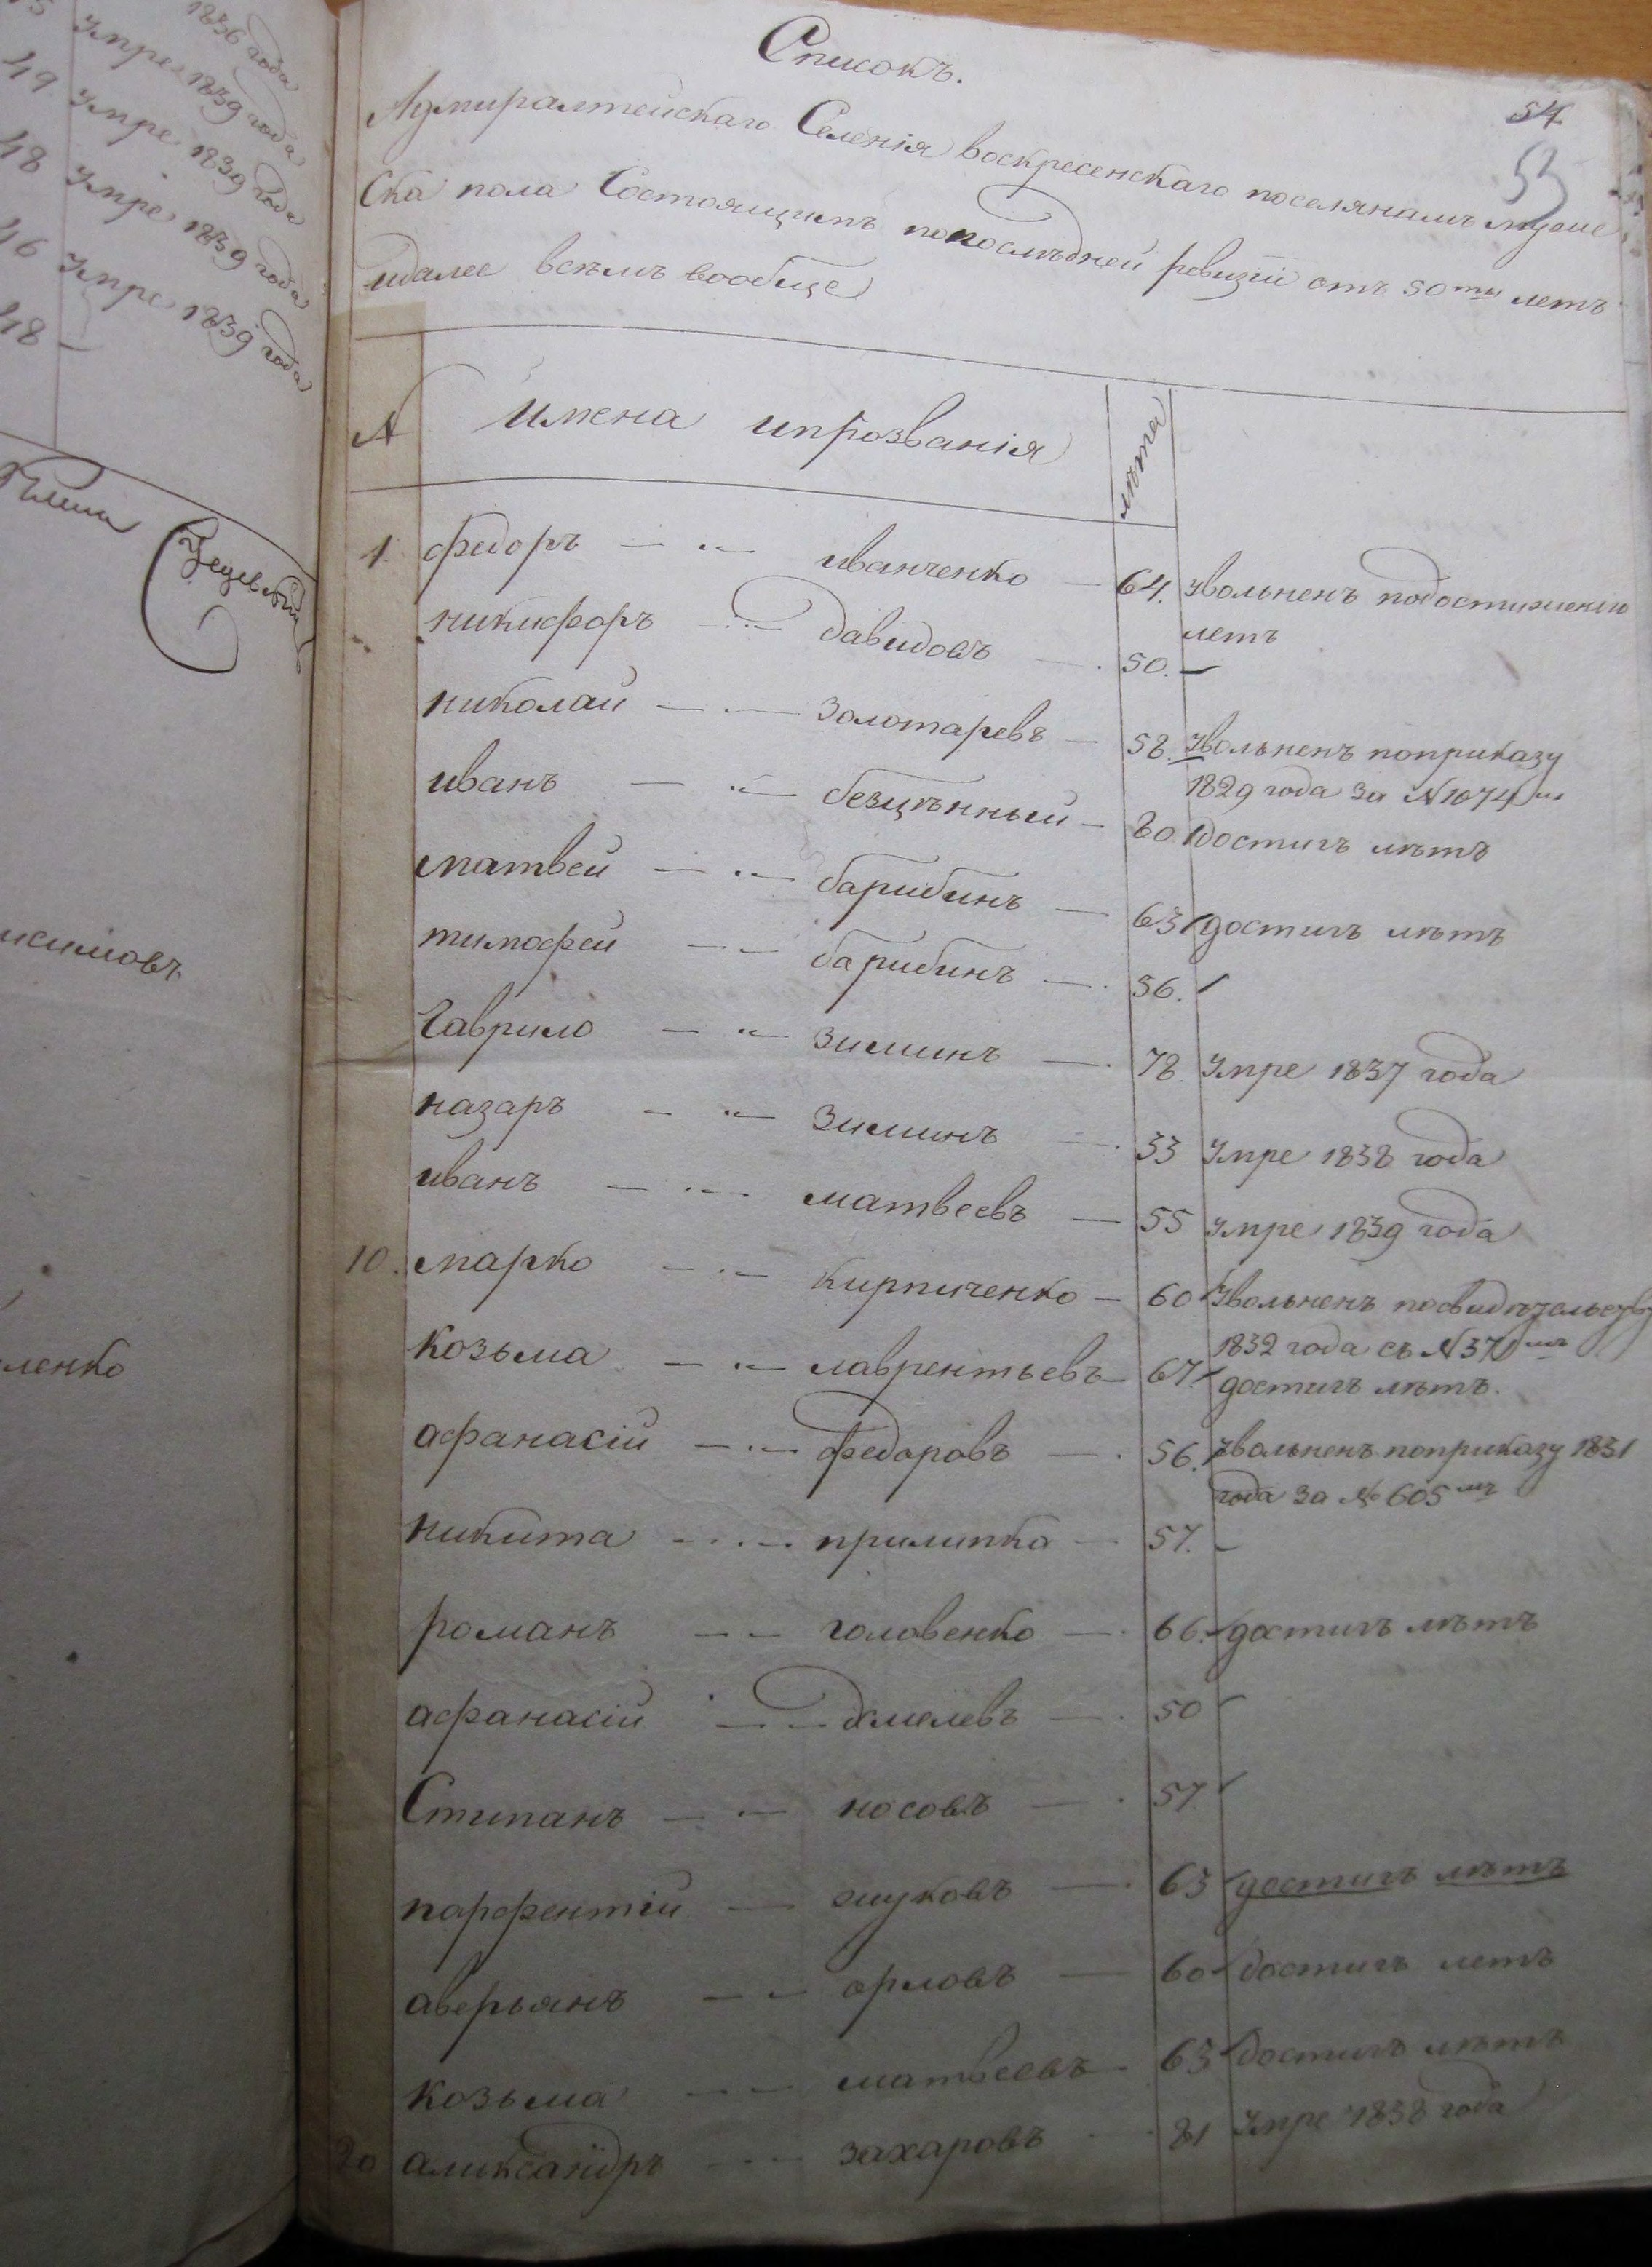 1836 года
Умре 1839 года
49 Умре 1839 года
48 Умре 1839 года
46 Умре 1839 года
48 —
исимовъ
ленко
Списокъ.
54
53
Адмиралтейскаго Селенія воскресенскаго поселянамъ муже
Ска пола Состоящимъ попоследней ревизіи отъ 50ти летъ
идалее всемъ вообще
№ имена ипрозванія лѣта
1. федоръ — „— иванченко — 64. Увольненъ подостижению
летъ
никифоръ — давидовъ — 50. —
николаи — — золотаревъ — 58. Увольненъ поприказу
1829 года за №1074мъ
иванъ — „— безцѣнный — 80 достигъ лѣтъ
матвеи — „— барибинъ — 63 достигъ лѣтъ
тимофеи — — барибинъ — 56.
Гаврило — „— зиминъ — 78. Умре 1837 года
назаръ — „— зиминъ — 53 Умре 1838 года
иванъ — „— матвеевъ — 55 Умре 1839 года
10. марко — „— кирпиченко — 60 Увольненъ посвидѣтельству
1832 года съ №370мъ
козьма — „— лаврентьевъ — 67. достигъ лѣтъ.
афанасіи — „— федоровъ — 56. Увольненъ поприказу 1831
года за № 605мъ
никита — — прилипка — 57. —
романъ — — головенко — 66. достигъ лѣтъ
афанасіи — — хмелевъ — 50
Стипанъ — — носовъ — 57
парфентіи — жуковъ — 63 достигъ лѣтъ
аверьянъ — — орловъ — 60 достигъ летъ
козьма — — матвеевъ — 63 достигъ лѣтъ
20 александръ — — захаровъ — 81 Умре 1838 года